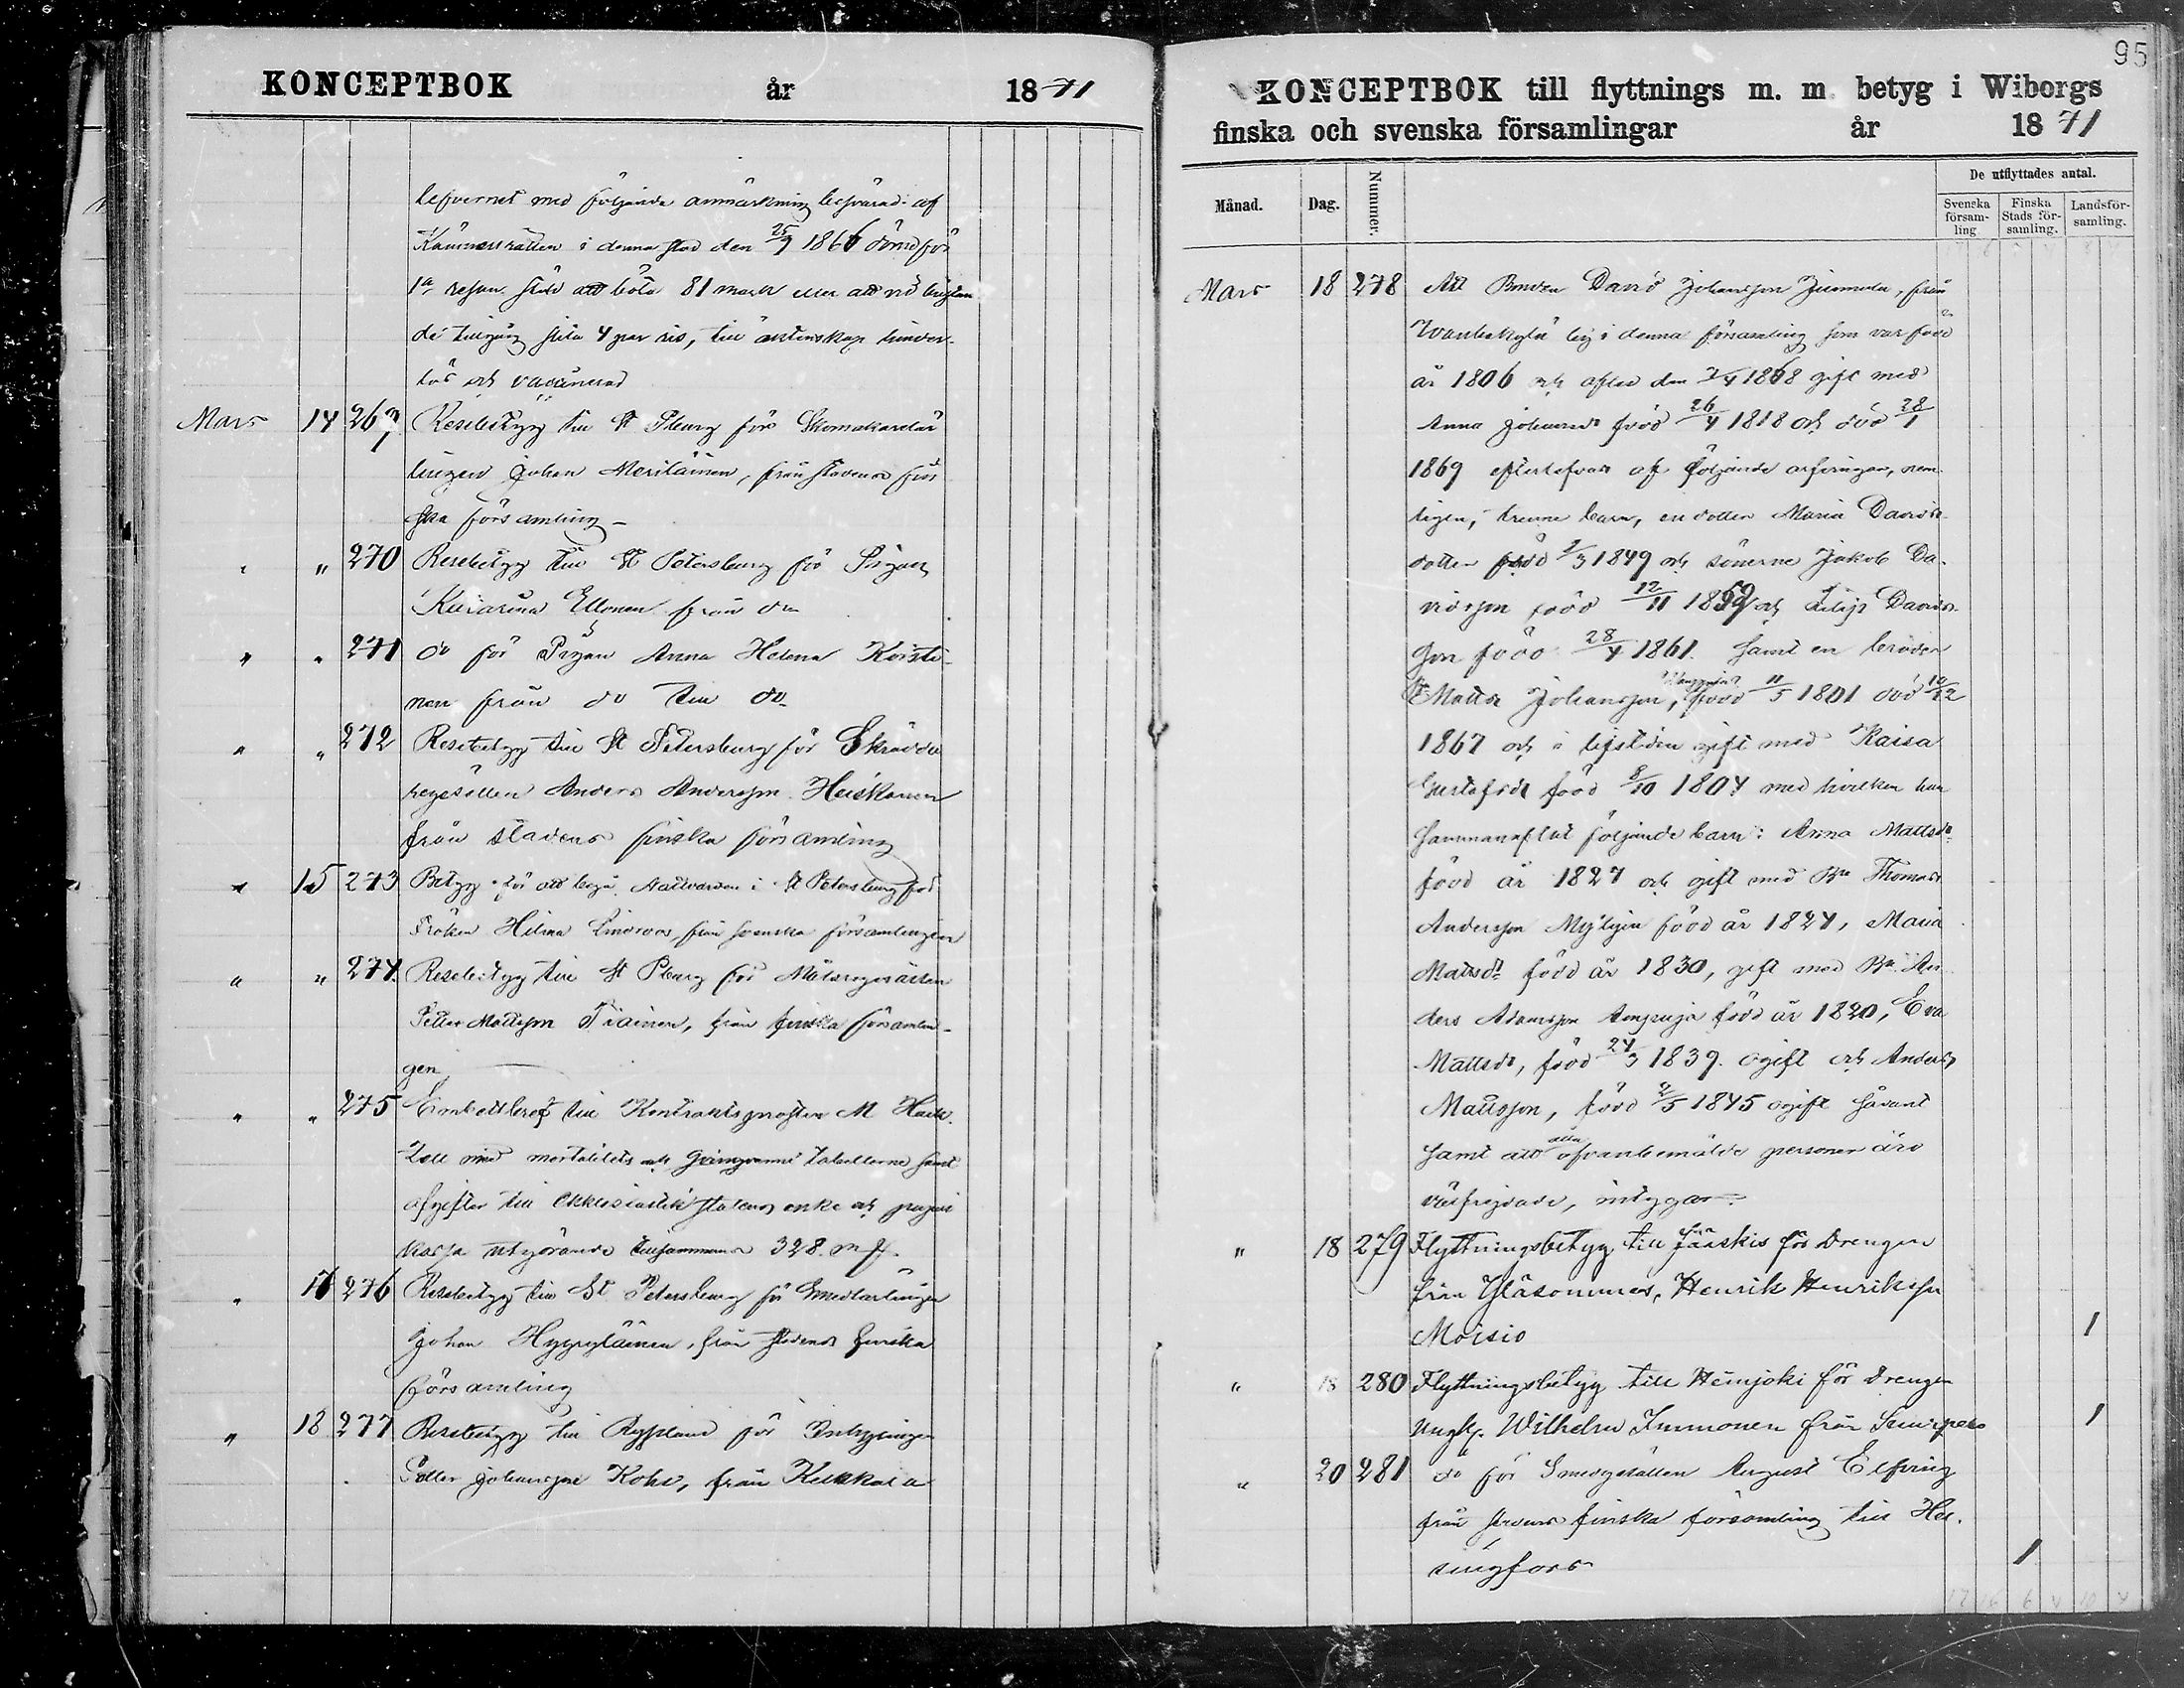 95
KONCEPTBOK år 1871
lefvernet med följande anmärkning besvärad: af
Kämnersrätten i denna stad den 25/9 1866 dömd för
1a resan stöld att böta 81 mark eller att vid bristan
de tillgång slita 4 par ris, till äktenskap hinder-
lös och vaccinerad
Mars 14 269 Resebetyg till St Pburg för Skomakarlär
lingen Johan Meriläinen, från stadens fin
ska församling
" " 270 Resebetyg till St Petersburg för Pigan
Katarina Ellonen från do
" " 271 do för Pigan Anna Helena Koisti-
nen från do till do
" " 272 Resebetyg till St Petersburg för Skrädda
regesällen Anders Andersson Heiskanen
från stadens finska församling
" 15 273 Betyg för att begå Nattvarden i St Petersburg för
Fröken Hilma Lindroos, från svenska församlingen
" " 274. Resebetyg till St Pburg för
Petter Mattsson Piainen, från finska församlin-
gen
" " 275 Embettbref till Kontraktsprosten M
med mortalitets och tabellerna samt
afgifter till Ekklesiastik statens enke och pupill
kassa utgörande tillsammans 328 mf.
" 16 276 Resebetyg till St Petersburg för Smedlärlingen
Johan Hyppyläinen, från stadens finska
församling
" 18 277 Resebetyg till Ryssland för Inhysingen
Petter Johansson Kohv, från Kelkkala
KONCEPTBOK till flyttnings m. m. betyg i Wiborgs
finska och svenska församlingar år 1871
Månad. Dag. Nummer. De utflyttades antal.
Svenska församling Finska Stads församling. Landsförsamling.
Mars 18 278 Att Bonden David Johansson, från
by i denna församling som var född
år 1806 och afled den 3/4 1868 gift med
Anna Johansdr född 26/4 1818 och död 28/1
1869 efterlefvas af följande arfvingar, nem
ligen, trenne barn, en dotter Maria Davids-
dotter född 3/3 1849 och sönerne Jakob Da-
vidsson född 12/11 1859 och Filip Davids-
son född 28/4 1861. samt en broder
Matts Johansson, född 11/5 1801 död 10/12
1867 och i lifstiden gift med Kaisa
Gustafsdr född 8/10 1804 med hvilken han
sammanaflat följande barn: Anna Mattsdr
född år 1827 och gift med Bn Thomas
Andersson född år 1824, Maria
Mattsdr född år 1830, gift med Bn An
ders Adamsson född år 1820, Eva
Mattsdr, född 24/3 1839. ogift och Anders
Mattsson, född 2/5 1845 ogift
samt att alla ofvanbemälde personer äro
välfrejdade, intygas
" 18 279 Flyttningsbetyg till Jääskis för Drengen
från Yläsommes, Henrik Henriksson
Moisio 1
" 18 280 Flyttningsbetyg till Heinjoki för Drengen
Ungk. Wilhelm Immonen från 1
" 20 281 do för Smedgesällen August Elfving
från stadens finska församling till Hel-
singfors 1